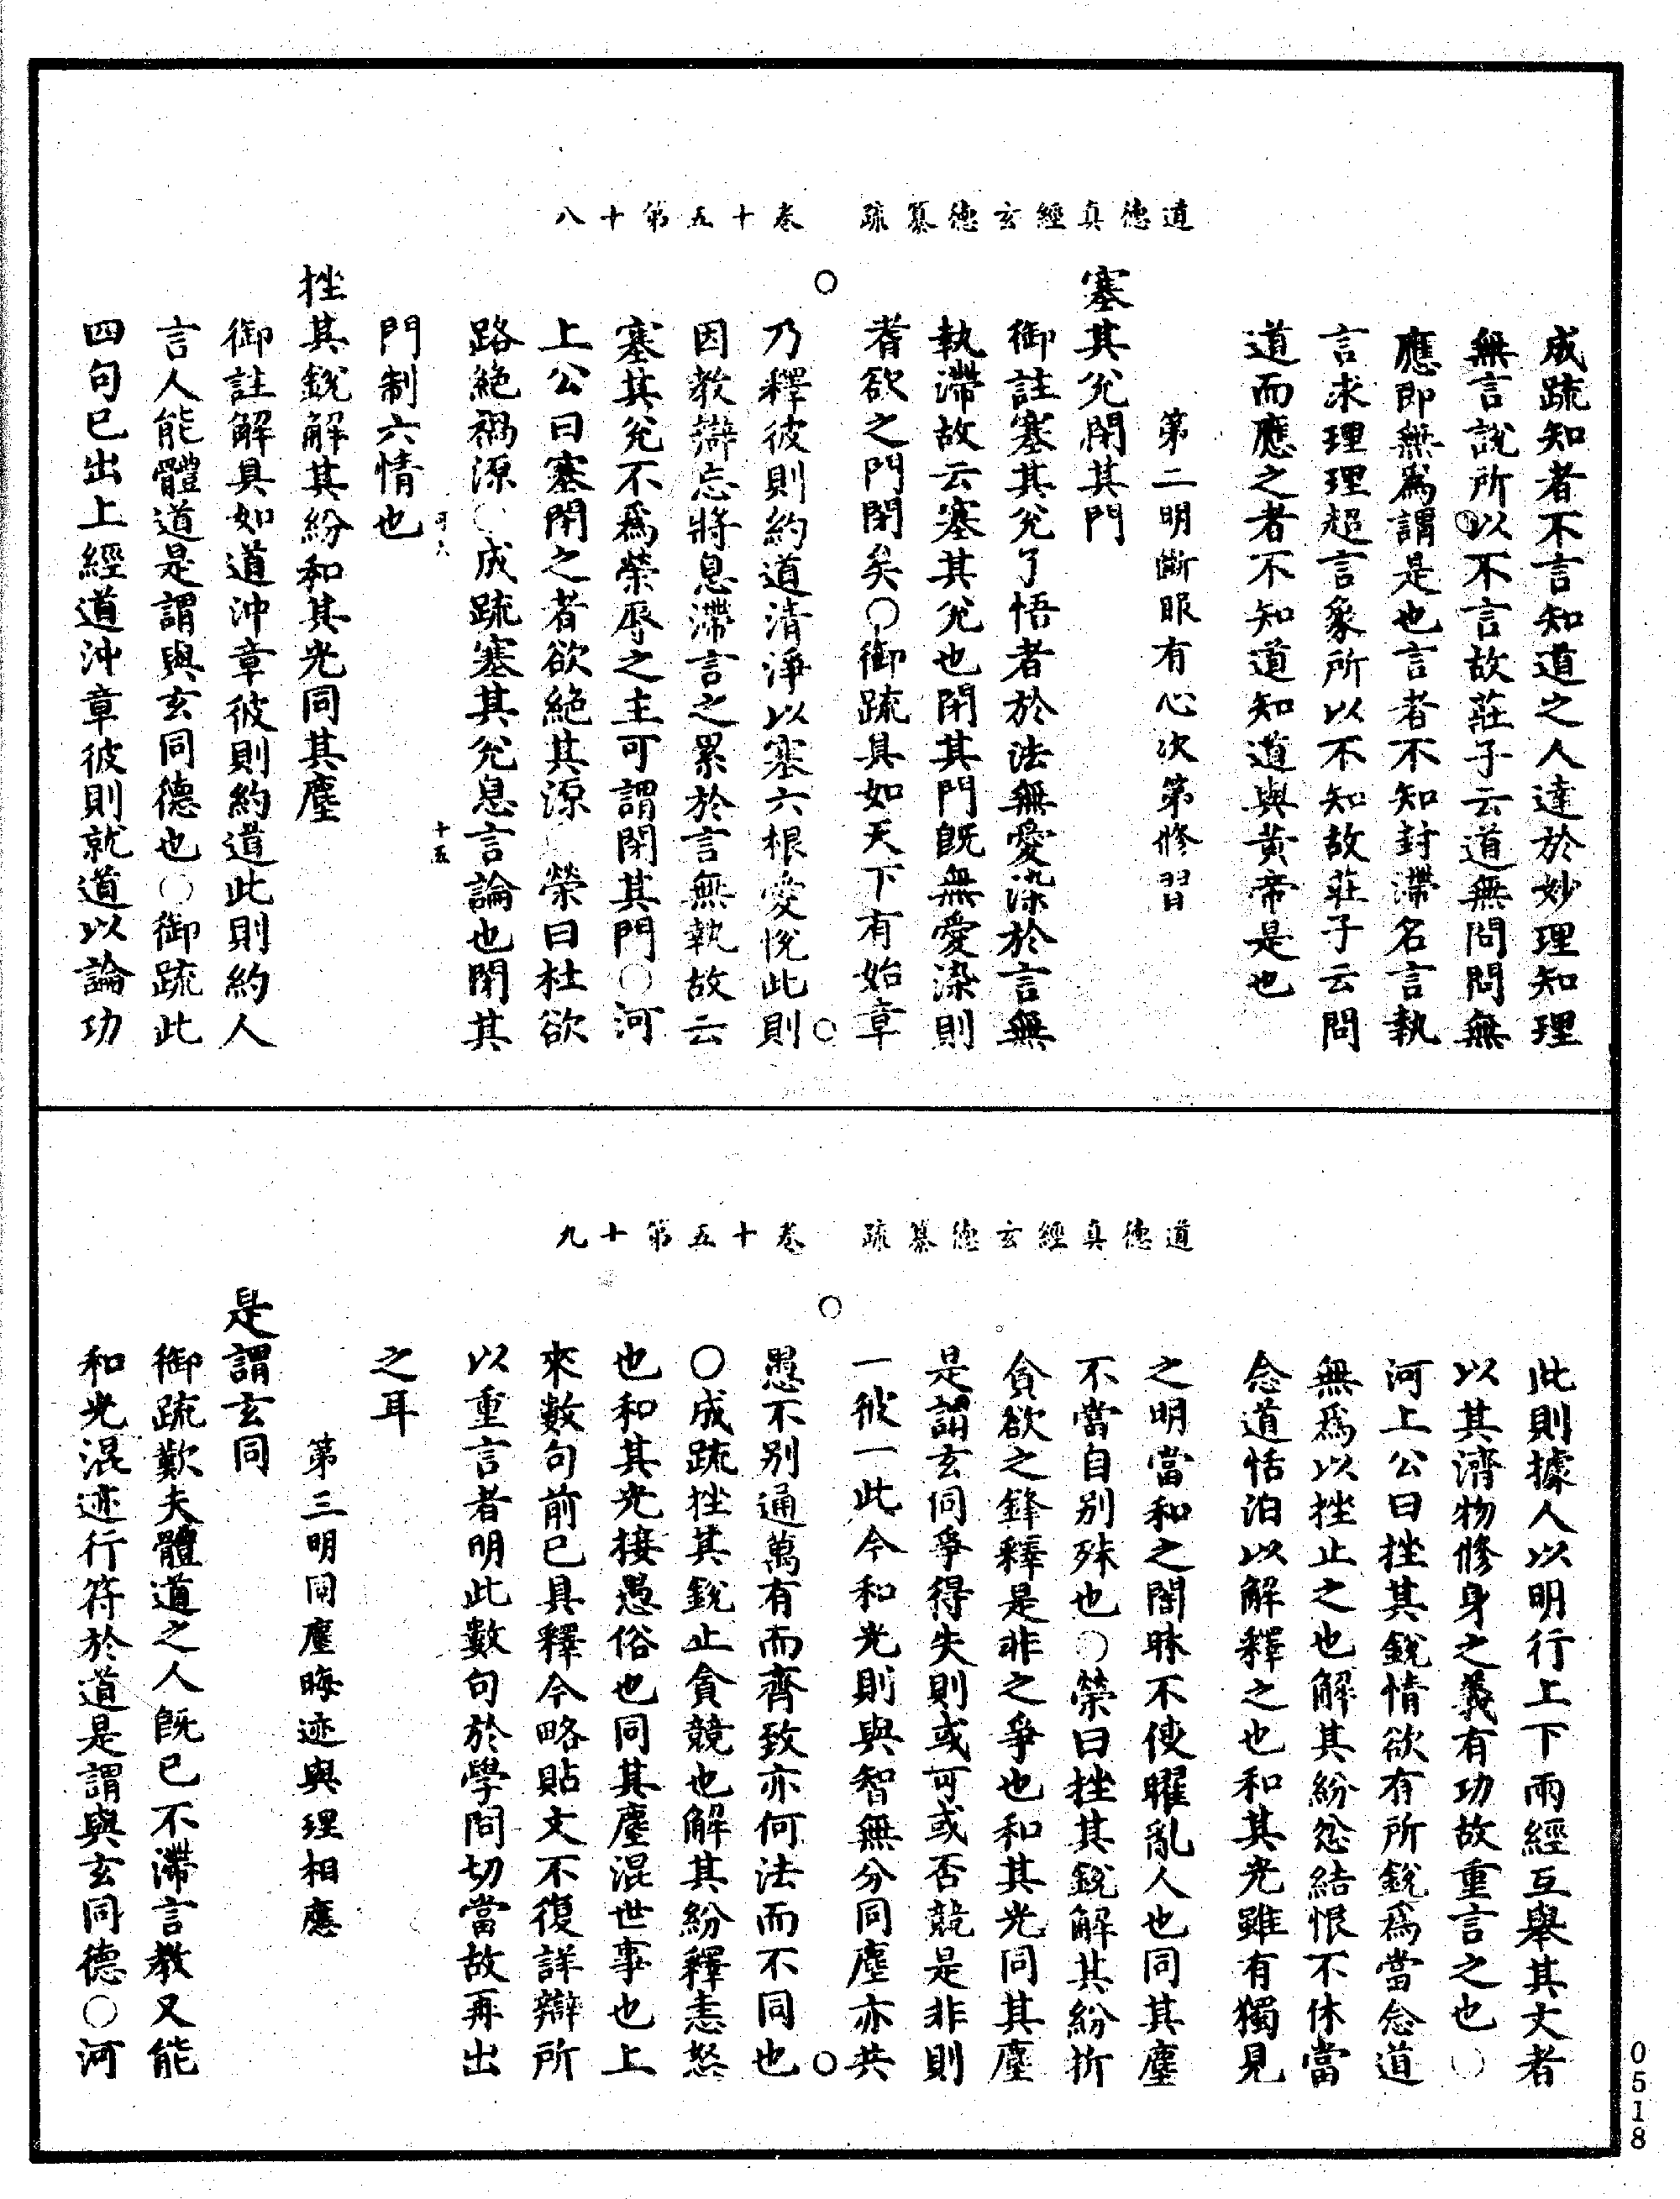 道德真經玄德纂疏　卷十五第十八
成疏知者不言知道之人達於妙理知理
無言說所以不言故莊子云道無問問無
應即無為謂是也言者不知封滯名言執
言求理理超言象所以不知故莊子云問
道而應之者不知道知道與黃帝是也
第二明斷眼有心次第修習
塞其兊閉其門
御註塞其兊了悟者於法無愛染於言無
執滯故云塞其兊也閉其門既無愛染則
耆欲之門閉矣○御疏具如天下有始章
乃釋彼則約道清淨以塞六根愛悅此則
因教辯忘將息滯言之累於言無執故云
塞其兊不為榮辱之主可謂閉其門○河
上公曰塞閉之者欲絕其源　榮曰杜欲
路絕禍源○成疏塞其兊息言論也閉其
門制六情也
十五
挫其銳解其紛和其光同其塵
御註解具如道沖章彼則約道此則約人
言人能體道是謂與玄同德也○御疏此
四句已出上經道沖章彼則就道以論功
道德真經玄德纂疏　卷十五第十九
此則據人以明行上下兩經互舉其文者
以其濟物修身之義有功故重言之也○
河上公曰挫其銳情欲有所銳為當念道
無為以挫止之也解其紛忿結恨不休當
念道恬泊以解釋之也和其光雖有獨見
之明當和之闇昧不使曜亂人也同其塵
不當自別殊也○榮曰挫其銳解其紛折
貪欲之鋒釋是非之爭也和其光同其塵
是謂玄同爭得失則或可或否競是非則
一彼一此今和光則與智無分同塵亦共
愚不別通萬有而齊致亦何法而不同也
○成疏挫其銳止貪競也解其紛釋恚怒
也和其光接愚俗也同其塵混世事也上
來數句前已具釋今略貼文不復詳辯所
以重言者明此數句於學問切當故再出
之耳
第三明同塵晦迹與理相應
是謂玄同
御疏歎夫體道之人既已不滯言教又能
和光混迹行符於道是謂與玄同德○河
0518